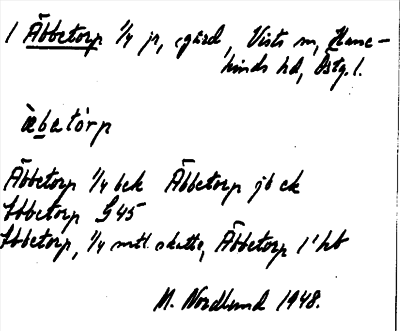 1 Äbbetorp 1/4 jr, egård, Vists sn, Hane-
kinds hd, Östg. l.
àbatórp
Äbbetorp 1/4 bek Äbbetorp jb ek
Ebbetorp G45
Ebbetorp, 1/4 mtl. skatte, Äbbetorp 1' hb
M. Nordlund 1948.